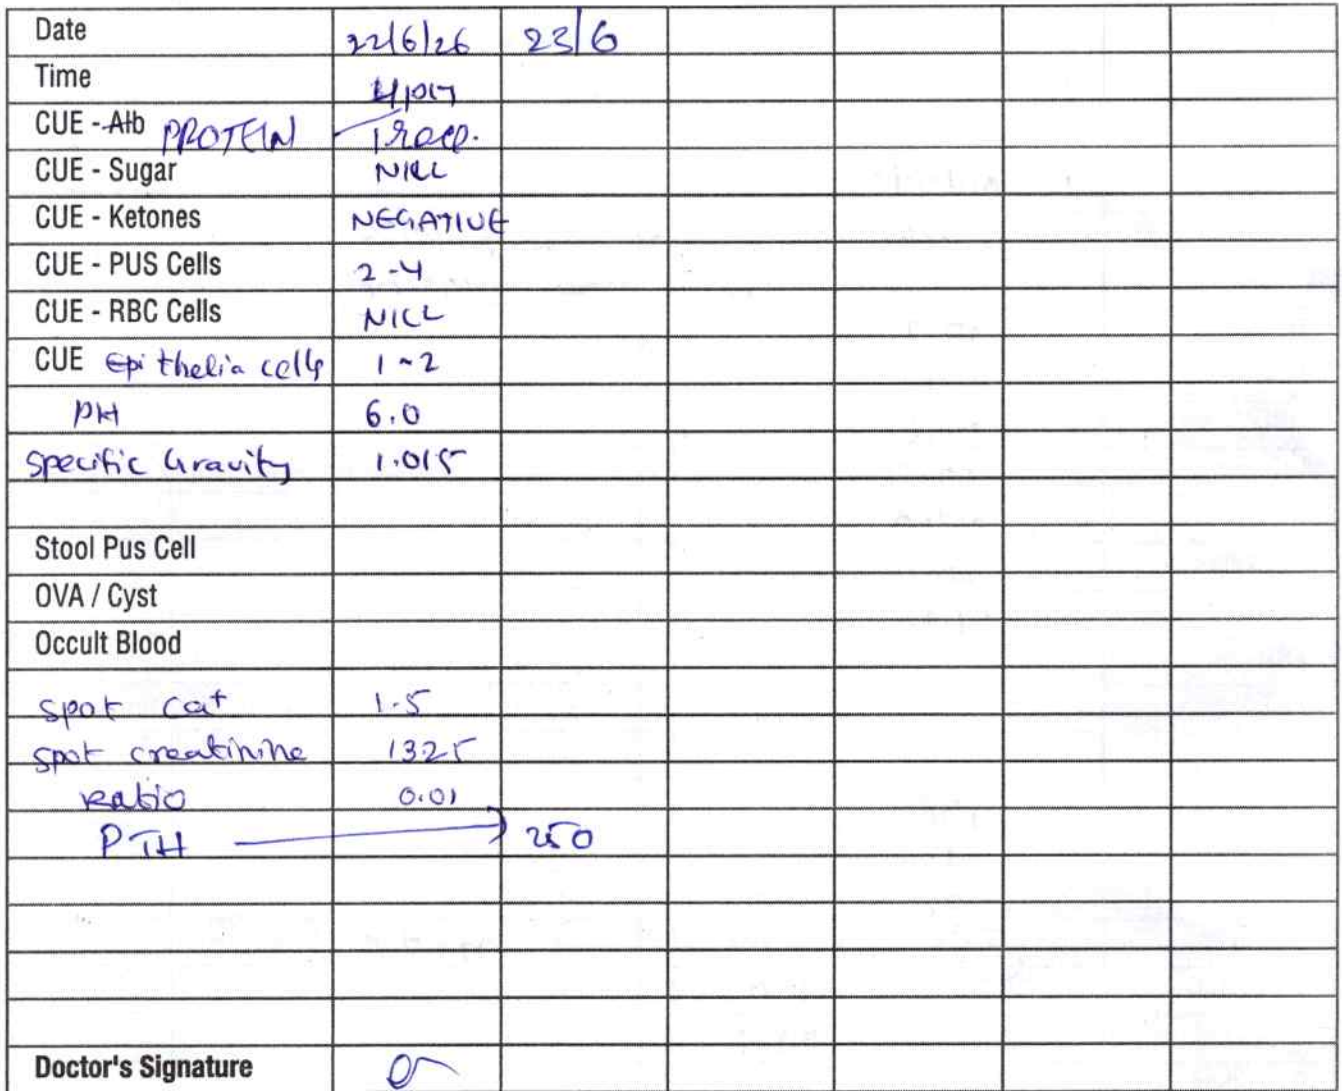 Date 22/6/26 23/6
Time 4pm
CUE - Alb PROTEIN Trace.
CUE - Sugar NILL
CUE - Ketones NEGATIVE
CUE - PUS Cells 2-4
CUE - RBC Cells NILL
CUE Epithelia cells 1-2
PH 6.0
Specific Gravity 1.015
Stool Pus Cell
OVA / Cyst
Occult Blood
spot ca+ 1.5
spot creatinine
Ratio 0.01
PTH 250
Doctor's Signature